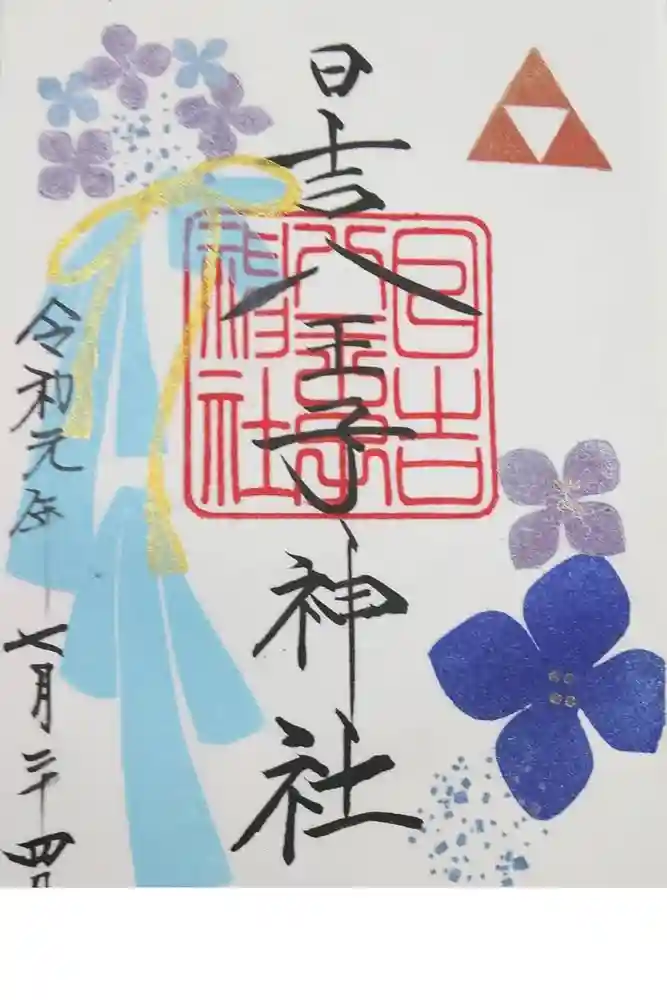 日吉八王子神社
日吉
八王子
神社
令和元年 七月二十四日